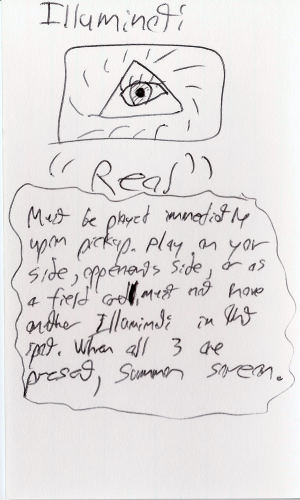 Illuminati
"Real"
Must be played immediatly
upon pickup. Play on your
side, opponents side, or as
a field card. must not have
another Illuminati in that
spot. When all 3 are
present, summon